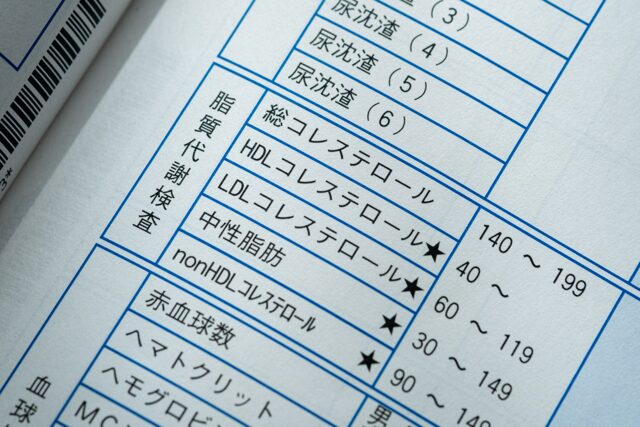 尿沈渣（3）
尿沈渣（4）
尿沈渣（5）
尿沈渣（6）
脂質代謝検査
総コレステロール 140 ～ 199
HDLコレステロール★ 40 ～
LDLコレステロール★ 60 ～ 119
中性脂肪 ★ 30 ～ 149
nonHDLコレステロール ★ 90 ～ 149
血球
赤血球数
ヘマトクリット 男
ヘモグロビ
MC